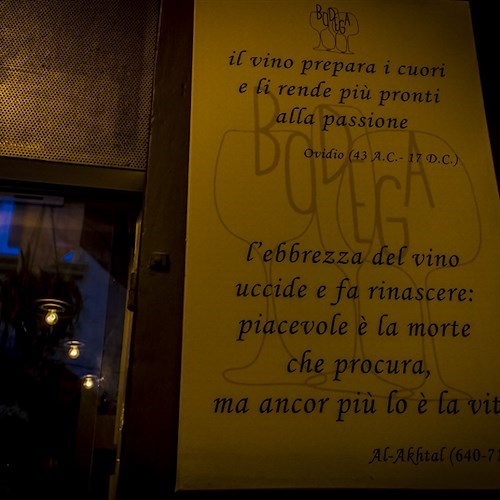 BODEGA
il vino prepara i cuori
e li rende più pronti
alla passione
Ovidio (43 A.C.- 17 D.C.)
BODEGA
l'ebbrezza del vino
uccide e fa rinascere:
piacevole è la morte
che procura,
ma ancor più lo è la vit
Al-Akhtal (640-71